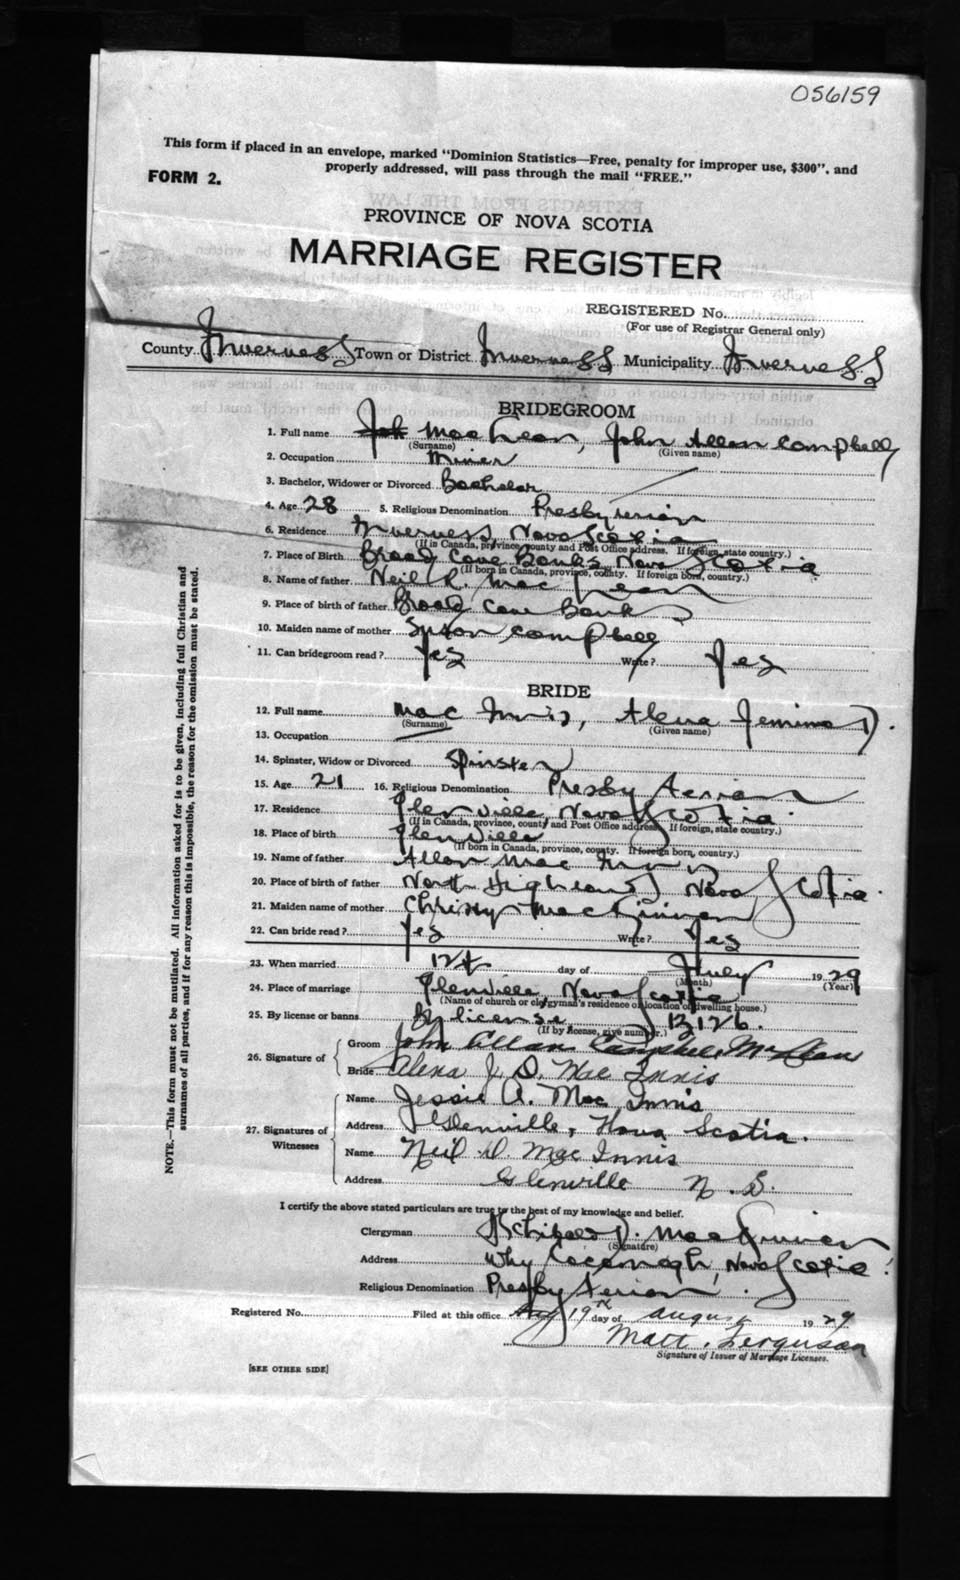 056159
This form if placed in an envelope, marked "Dominion Statistics—Free, penalty for improper use, $300", and
properly addressed, will pass through the mail "FREE."
FORM 2.
PROVINCE OF NOVA SCOTIA
MARRIAGE REGISTER
REGISTERED No.
(For use of Registrar General only)
County Inverness Town or District Inverness Municipality Inverness
BRIDEGROOM
1. Full name MacLean, John Allan Campbell
(Surname) (Given name)
2. Occupation Miner
3. Bachelor, Widower or Divorced Bachelor
4. Age 28 5. Religious Denomination Presbyterian
6. Residence Inverness, Nova Scotia
(If in Canada, province, county and Post Office address. If foreign, state country.)
7. Place of Birth Broad Cove Banks Nova Scotia
(If born in Canada, province, county. If foreign born, country.)
8. Name of father Neil R. MacLean
9. Place of birth of father Broad Cove Banks
10. Maiden name of mother Susan Campbell
11. Can bridegroom read? Yes Write? Yes
BRIDE
12. Full name MacInnis, Alena Jemima D.
(Surname) (Given name)
13. Occupation
14. Spinster, Widow or Divorced Spinster
15. Age 21 16. Religious Denomination Presbyterian
17. Residence Glenville, Nova Scotia.
(If in Canada, province, county and Post Office address. If foreign, state country.)
18. Place of birth Glenville
(If born in Canada, province, county. If foreign born, country.)
19. Name of father Allan MacInnis
20. Place of birth of father North Highlands Nova Scotia.
21. Maiden name of mother Christy MacKinnon
22. Can bride read? Yes Write? Yes
23. When married 12th day of July 1929
(Month) (Year)
24. Place of marriage Glenville, Nova Scotia
(Name of church or clergyman's residence or location of dwelling house.)
25. By license or banns By license B126.
(If by license, give number.)
26. Signature of Groom John Allan Campbell McLean
Bride Alena J. D. MacInnis
27. Signatures of Witnesses Name Jessie A. MacInnis
Address Glenville, Nova Scotia.
Name Neil D. MacInnis
Address Glenville N.S.
I certify the above stated particulars are true to the best of my knowledge and belief.
Clergyman Archibald D. MacKinnon
(Signature)
Address Whycocomagh, Nova Scotia.
Religious Denomination Presbyterian.
Registered No. Filed at this office 19th day of August 1929
Matt. Ferguson
Signature of Issuer of Marriage Licenses.
[SEE OTHER SIDE]
NOTE.—This form must not be mutilated. All information asked for is to be given, including full Christian and
surnames of all parties, and if for any reason this is impossible, the reason for the omission must be stated.